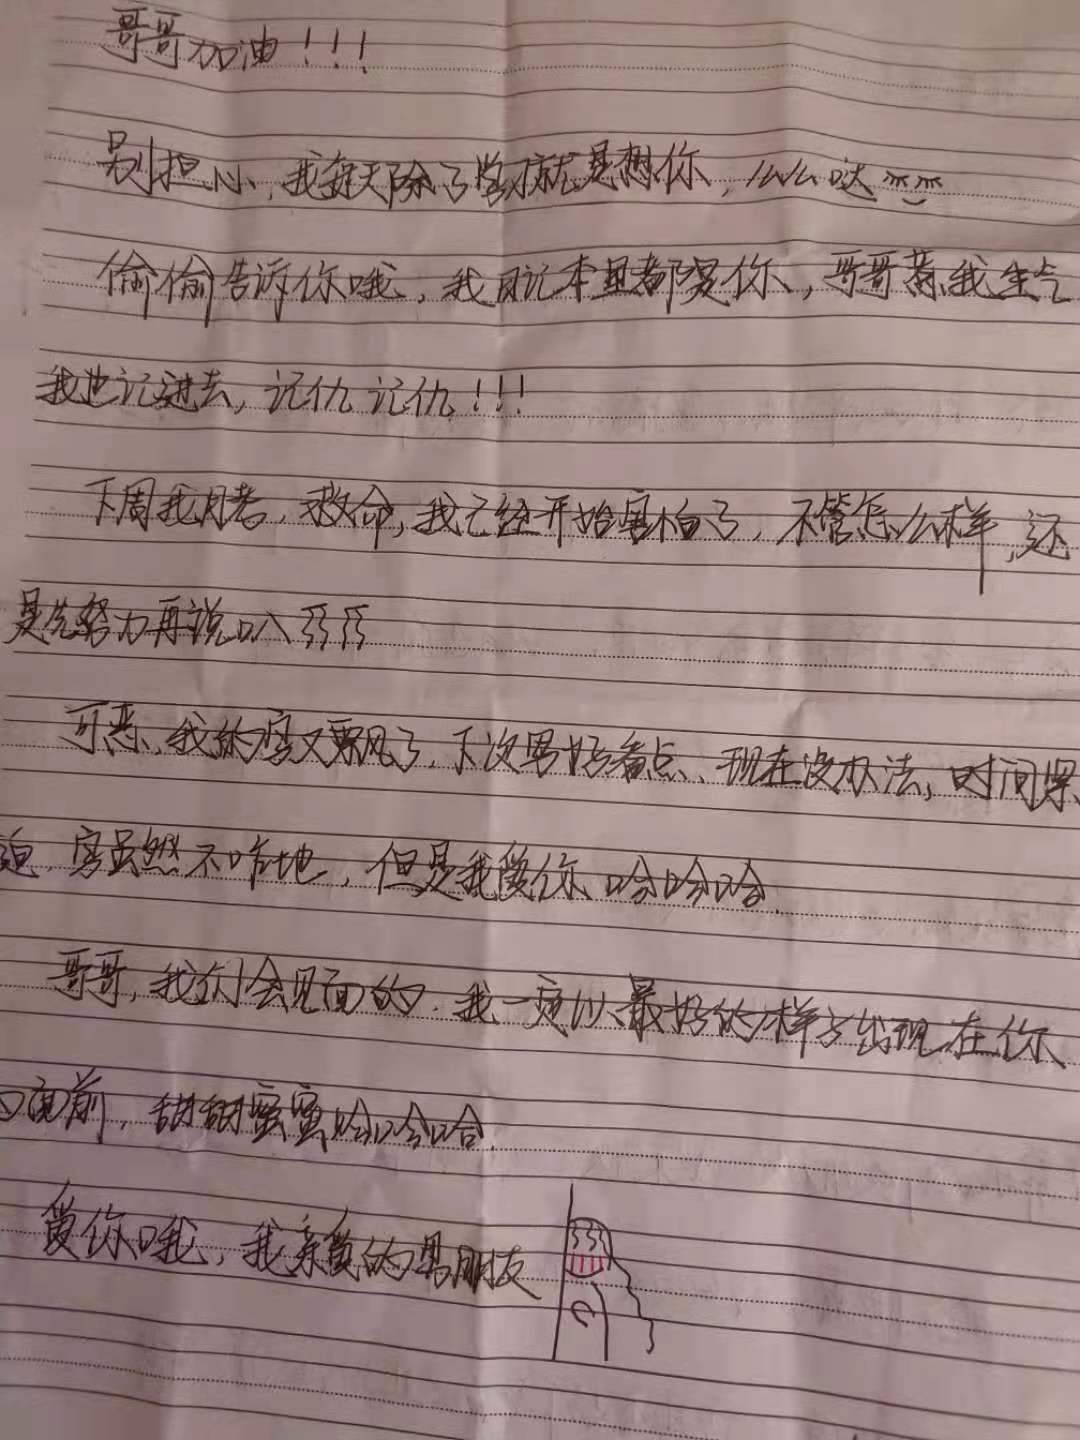 哥哥加油!!!
别担心,我每天除了学习就是想你,么么哒
偷偷告诉你哦,我日记本里都是你,哥哥惹我生气
我也记进去,记仇记仇!!!
下周我月考,救命,我已经开始害怕了,不管怎么样,还
是先努力再说叭
可恶,我的字又飘了,下次写好看点、现在没办法,时间紧
迫,字虽然不咋地,但是我爱你哈哈哈.
哥哥,我们会见面的.我一定以最好的样子出现在你
面前,甜甜蜜蜜哈哈哈.
爱你哦,我亲爱的男朋友